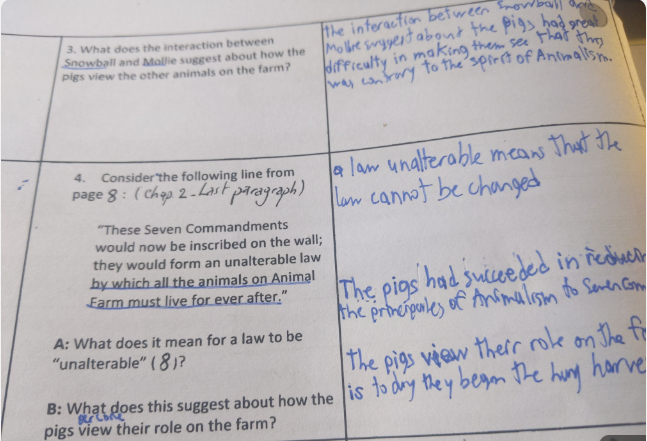 3. What does the interaction between
Snowball and Mollie suggest about how the
pigs view the other animals on the farm?
the interaction between Snowball and
Mollie suggest about the pigs had great
difficulty in making them see that this
was contrary to the spirit of Animalism.
4. Consider the following line from
page 8 : (Chap 2 - Last paragraph)
"These Seven Commandments
would now be inscribed on the wall;
they would form an unalterable law
by which all the animals on Animal
Farm must live for ever after."
A: What does it mean for a law to be
"unalterable" (8)?
B: What does this suggest about how the
perceive
pigs view their role on the farm?
a law unalterable means that the
law cannot be changed
The pigs had succeeded in
the of Animalism to Seven Com
The pigs view their role on the
is to day they began the hay harve